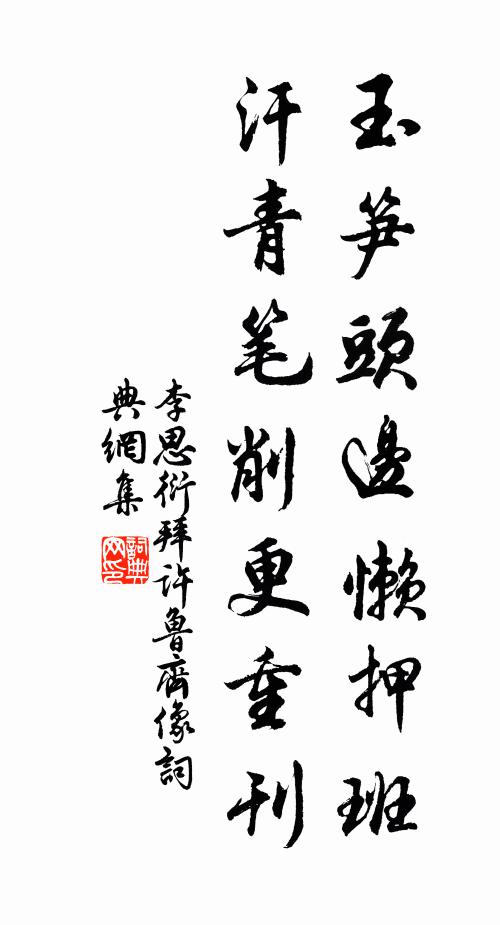 玉笋頭邊懶押班
汗青笔削更重刊
李思衍拜許魯齋像詞
典網集
詞典網印